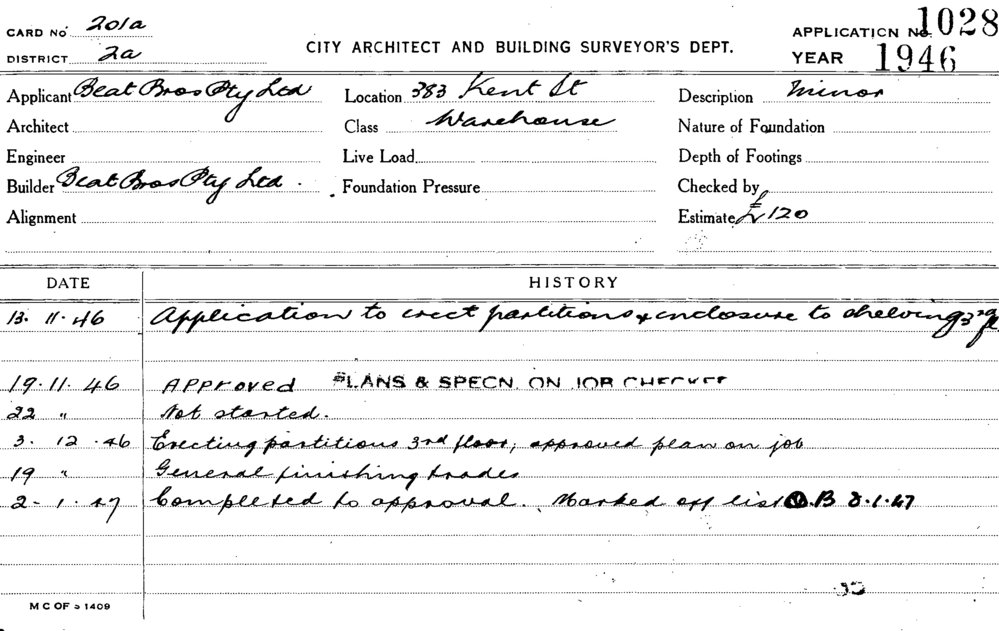 CARD No 201a
DISTRICT 2a
CITY ARCHITECT AND BUILDING SURVEYOR'S DEPT.
APPLICATION No. 1028
YEAR 1946
Applicant Beat Bros Pty Ltd Location 383 Kent St Description Minor
Architect Class Warehouse Nature of Foundation
Engineer Live Load Depth of Footings
Builder Beat Bros Pty Ltd. Foundation Pressure Checked by
Alignment Estimate £120
DATE HISTORY
13. 11. 46 Application to erect partitions & enclosure to shelving 3rd fl.
19. 11. 46 Approved PLANS & SPECN. ON JOB CHECKED
22 " Not started.
3. 12. 46 Erecting partitions 3rd floor, approved plan on job
19 " General finishing trades
2. 1. 47 Completed to approval. Marked off list .B 8.1.47
M C OF S 1409